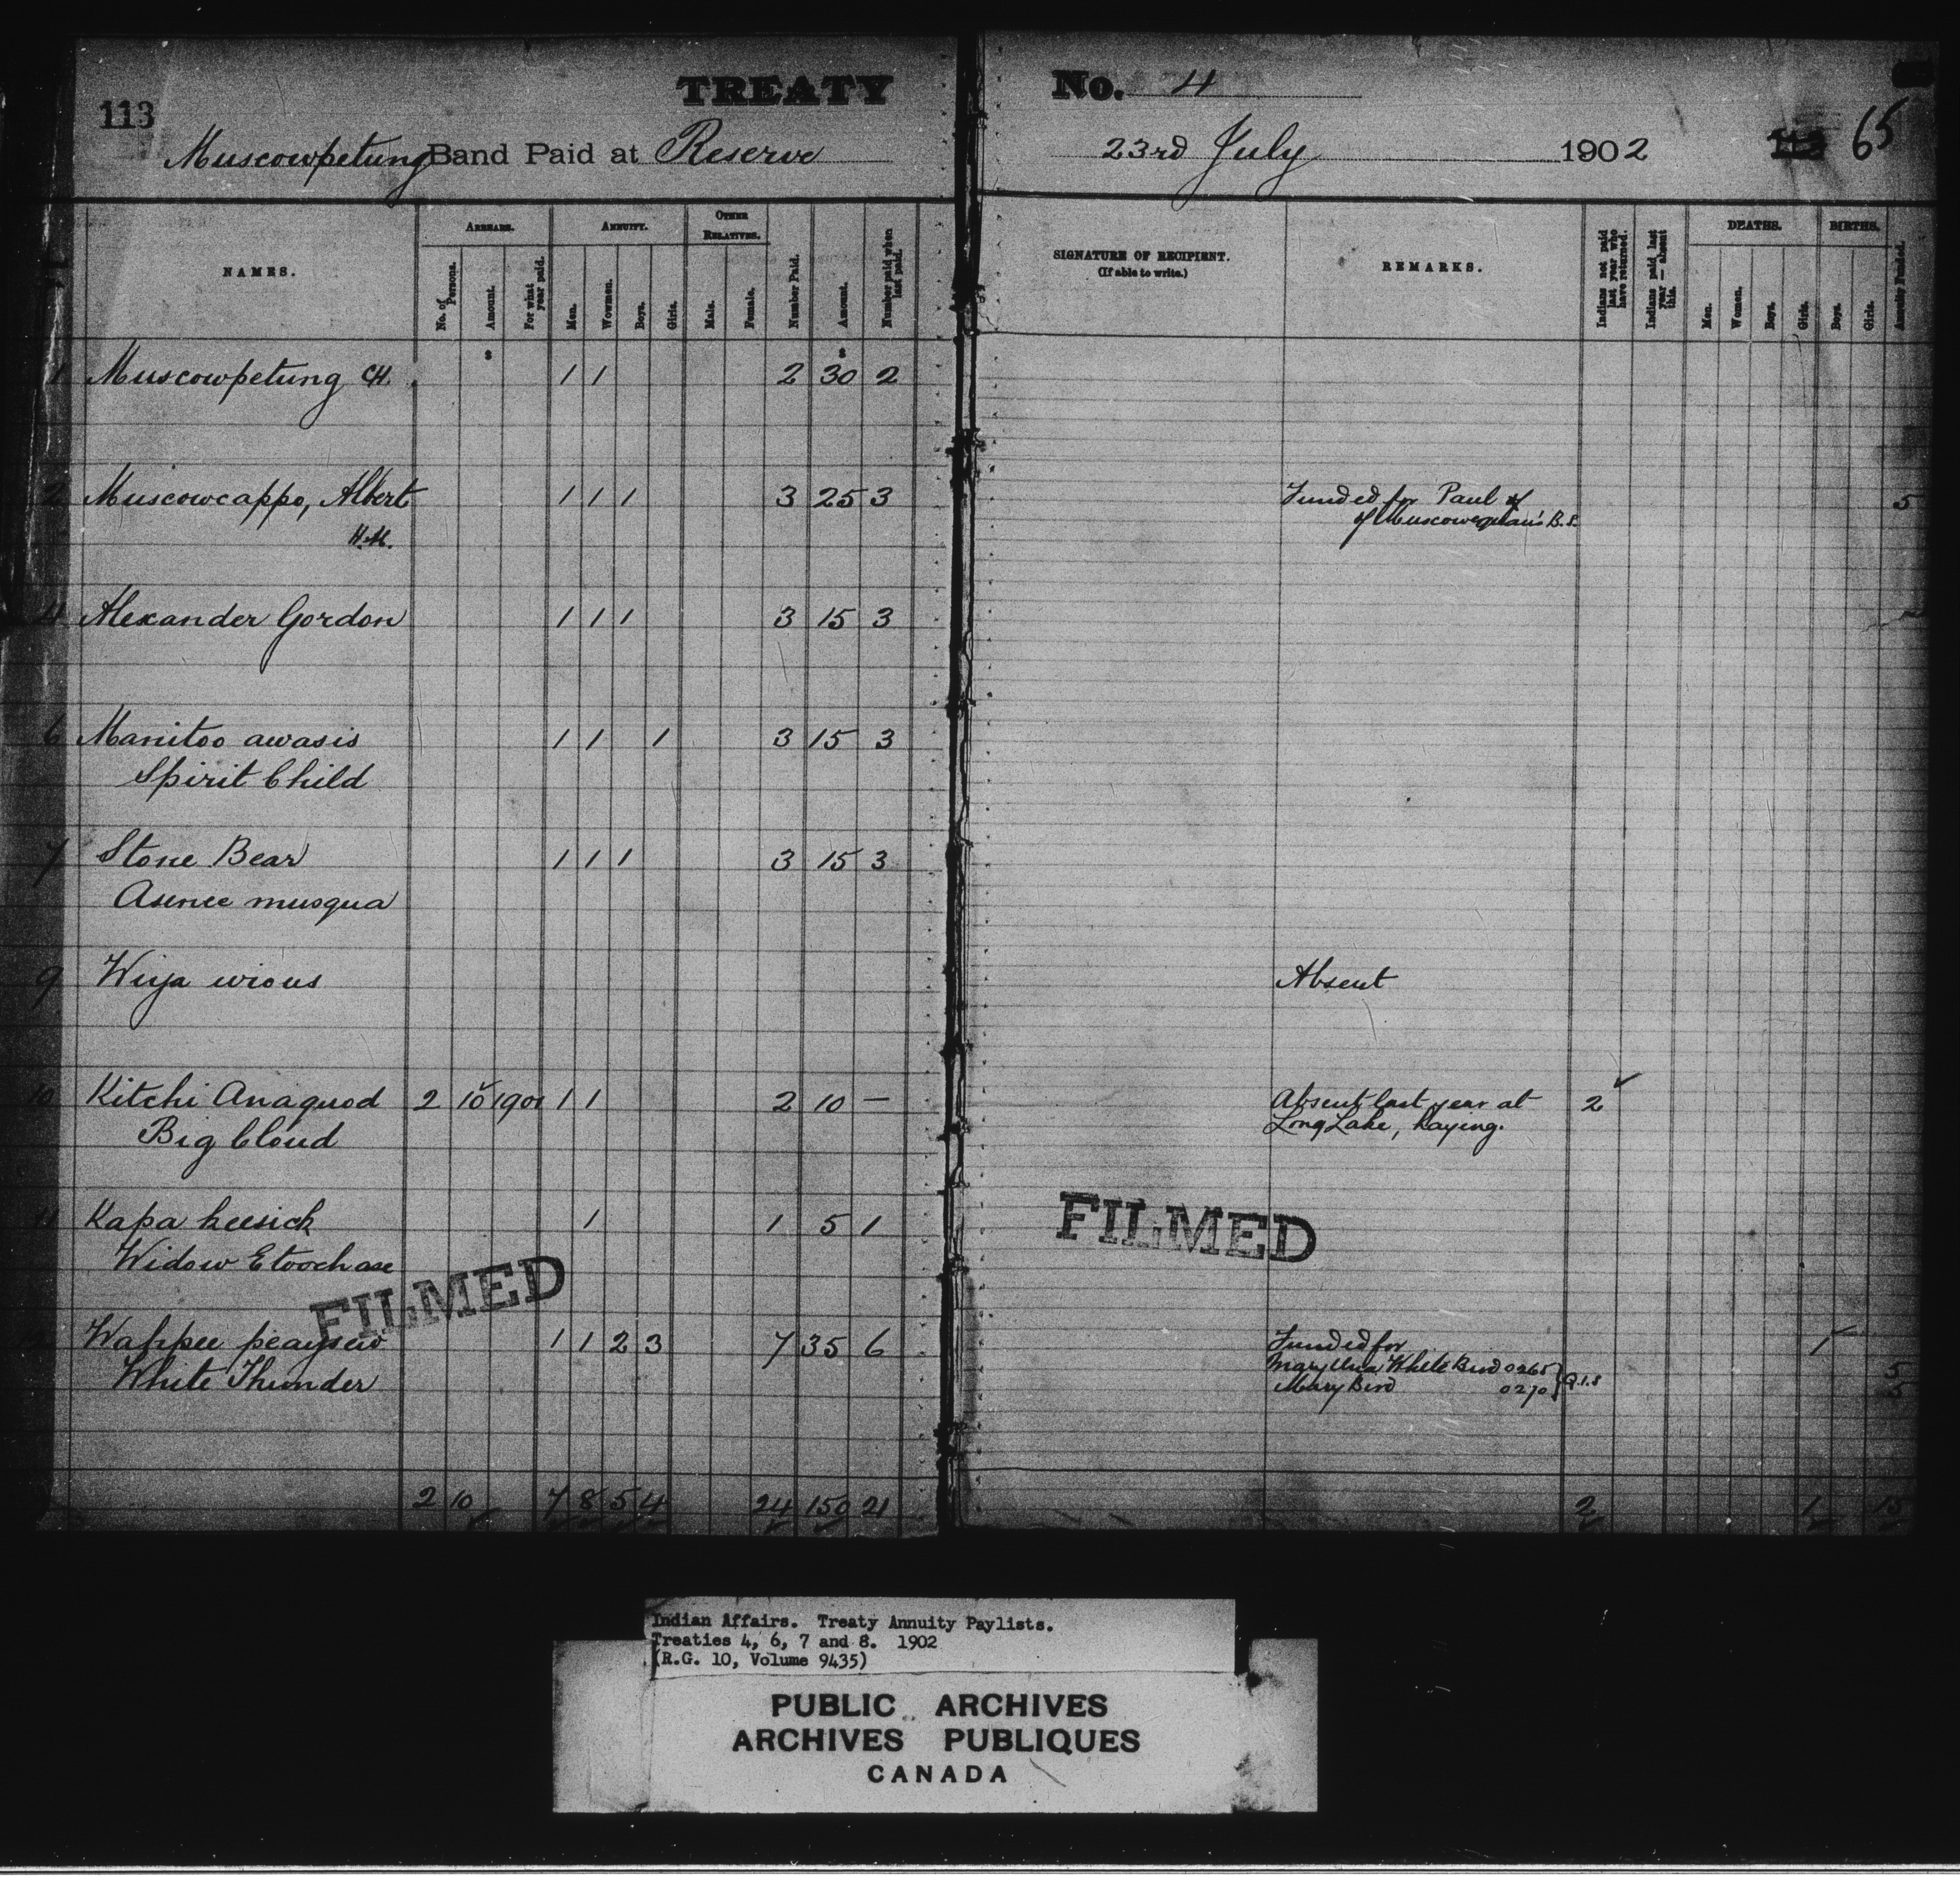 113
TREATY No. 4
Muscowpetung Band Paid at Reserve 23rd July 1902 113 65
NAMES.
ARREARS.
No. of Persons.
Amount.
For what year paid.
ANNUITY.
Men.
Women.
Boys.
Girls.
OTHER RELATIVES.
Male.
Female.
Number Paid.
Amount.
Number paid when last paid.
SIGNATURE OF RECIPIENT.
(If able to write.)
REMARKS.
Indians not paid last year who have returned.
Indians paid last year — absent this.
DEATHS.
Men.
Women.
Boys.
Girls.
BIRTHS.
Boys.
Girls.
Annuity Funded.
$ $
1 Muscowpetung CH. 1 1 2 30 2
2 Muscowcappo, Albert 1 1 1 3 25 3 Funded for Paul 5
H.M. of Muscowequan's B.S.
4 Alexander Gordon 1 1 1 3 15 3
6 Manitoo awasis 1 1 1 3 15 3
Spirit Child
7 Stone Bear 1 1 1 3 15 3
Asinee musqua
9 Wiya wious Absent
10 Kitchi Anaquod 2 10 1901 1 1 2 10 — Absent last year at 2
Big Cloud Long Lake, haying.
11 Kapa keesick 1 1 5 1
Widow Etoochase
FILMED FILMED
Wahpee peaysew 1 1 2 3 7 35 6 Funded for 1
Mary Una White Bird 0265 5
White Thunder Mary Bird 0270 Q.I.S 5
2 10 7 8 5 4 24 150 21 2 1 15
Indian Affairs. Treaty Annuity Paylists.
Treaties 4, 6, 7 and 8. 1902
(R.G. 10, Volume 9435)
PUBLIC ARCHIVES
ARCHIVES PUBLIQUES
CANADA